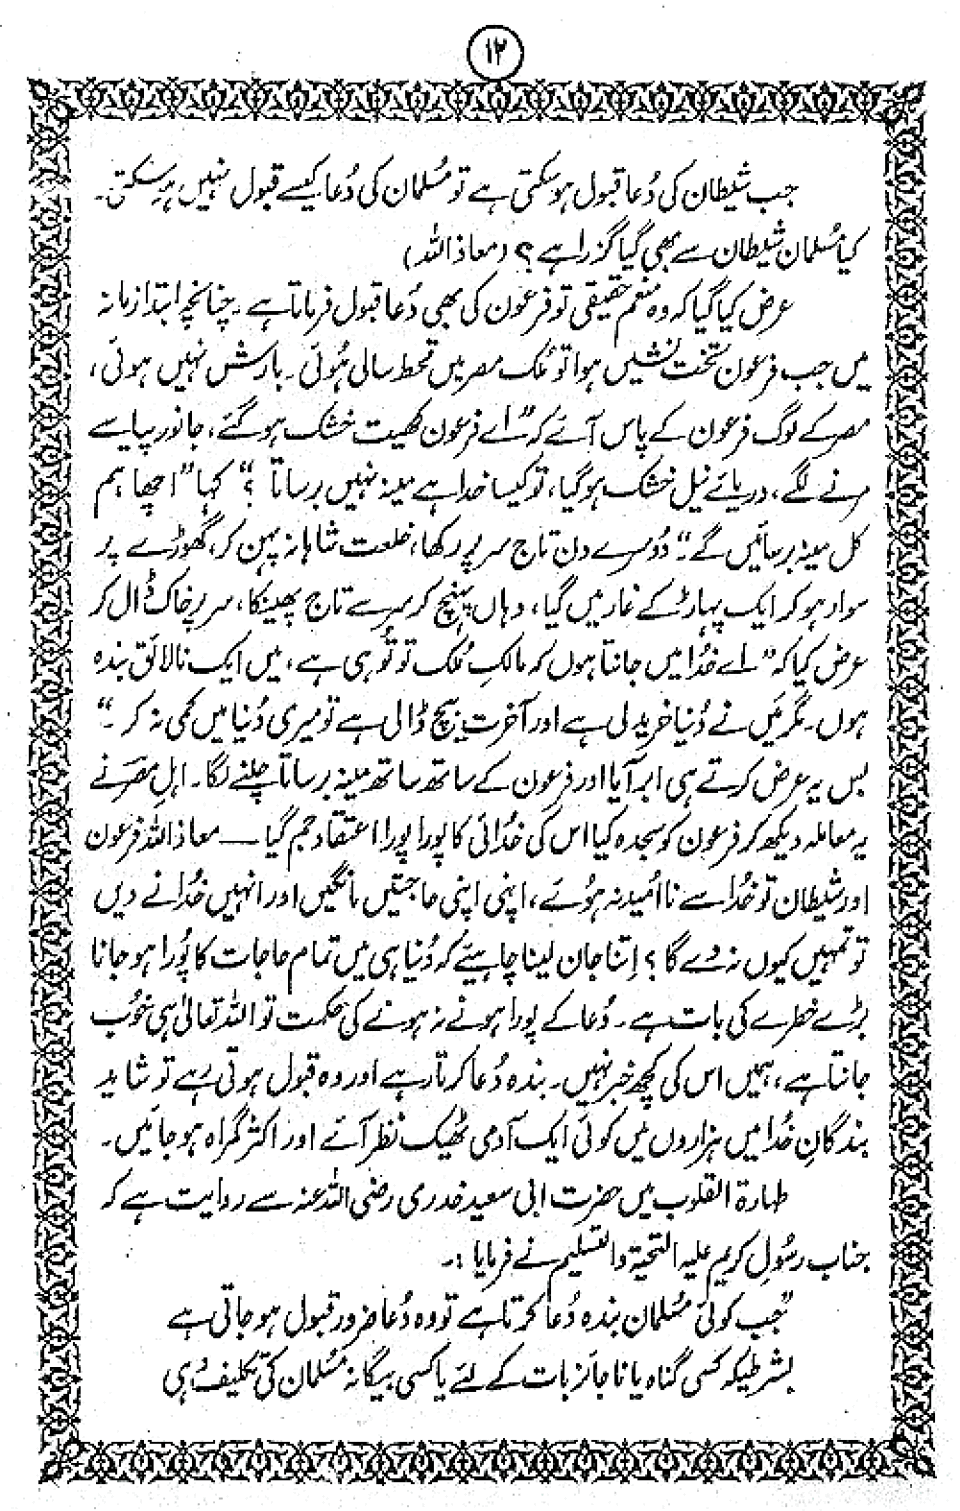 ۱۲
جب شیطان کی دُعا قبول ہو سکتی ہے تو مُسلمان کی دُعا کیسے قبول نہیں ہو سکتی۔
کیا مُسلمان شیطان سے بھی گیا گزرا ہے؟ (معاذ اللہ)
عرض کیا گیا کہ وہ منعم حقیقی تو فرعون کی بھی دُعا قبول فرماتا ہے۔ چنانچہ ابتدا زمانہ
میں جب فرعون تخت نشیں ہوا تو مُلک مصر میں قحط سالی ہُوئی۔ بارش نہیں ہوئی،
مصر کے لوگ فرعون کے پاس آئے کہ "اے فرعون کھیت خشک ہو گئے، جانور پیاسے
مرنے لگے، دریائے نیل خشک ہو گیا، تو کیسا خدا ہے مینہ نہیں برساتا ؟" کہا "اچھا ہم
کل مینہ برسائیں گے"۔ دُوسرے دن تاج سر پر رکھا، خلعت شاہانہ پہن کر، گھوڑے پر
سوار ہو کر ایک پہاڑ کے غار میں گیا، وہاں پہنچ کر سر سے تاج پھینکا، سر پر خاک ڈال کر
عرض کیا کہ "اے خُدا میں جانتا ہوں کہ مالکِ مُلک تو تُو ہی ہے، میں ایک نالائق بندہ
ہوں۔ مگر میں نے دُنیا خرید لی ہے اور آخرت بیچ ڈالی ہے تو میری دُنیا میں کمی نہ کر۔"
بس یہ عرض کرتے ہی ابر آیا اور فرعون کے ساتھ ساتھ مینہ برساتا چلنے لگا۔ اہلِ مصر نے
یہ معاملہ دیکھ کر فرعون کو سجدہ کیا اس کی خُدائی کا پورا پورا اعتقاد جم گیا — معاذ اللہ فرعون
اور شیطان تو خُدا سے نا اُمید نہ ہُوئے، اپنی اپنی حاجتیں مانگیں اور انہیں خُدا نے دیں
تو تمہیں کیوں نہ دے گا؟ اِتنا جان لینا چاہیئے کہ دُنیا ہی میں تمام حاجات کا پُورا ہو جانا
بڑے خطرے کی بات ہے۔ دُعا کے پورا ہونے نہ ہونے کی حکمت تو اللہ تعالیٰ ہی خُوب
جانتا ہے، ہمیں اس کی کچھ خبر نہیں۔ بندہ دُعا کرتا رہے اور وہ قبول ہوتی رہے تو شاید
بندگانِ خُدا میں ہزاروں میں کوئی ایک آدمی ٹھیک نظر آئے اور اکثر گمراہ ہو جائیں۔
طہارۃ القلوب میں حضرت ابی سعید خدری رضی اللہ عنہ سے روایت ہے کہ
جناب رسُولِ کریم علیہ التحیۃ والتسلیم نے فرمایا :۔
"جب کوئی مُسلمان بندہ دُعا کرتا ہے تو وہ دُعا ضرور قبول ہو جاتی ہے
بشرطیکہ کسی گناہ یا ناجائز بات کے لئے یا کسی بیگانہ مُسلمان کی تکلیف دہی